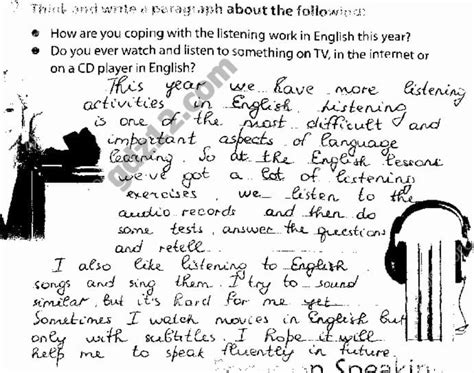 Think and write a paragraph about the following:
How are you coping with the listening work in English this year?
Do you ever watch and listen to something on TV, in the internet or
on a CD player in English?
This year we have more listening
activities in English. Listening
is one of the most difficult and
important aspects of language
learning. So at the English lessons
we've got a lot of listening
exercises, we listen to the
audio records and then do
some tests, answer the questions
and retell.
I also like listening to English
songs and sing them. I try to sound
similar, but it's hard for me yet.
Sometimes I watch movies in English but
only with subtitles. I hope it will
help me to speak fluently in future.
Speaking